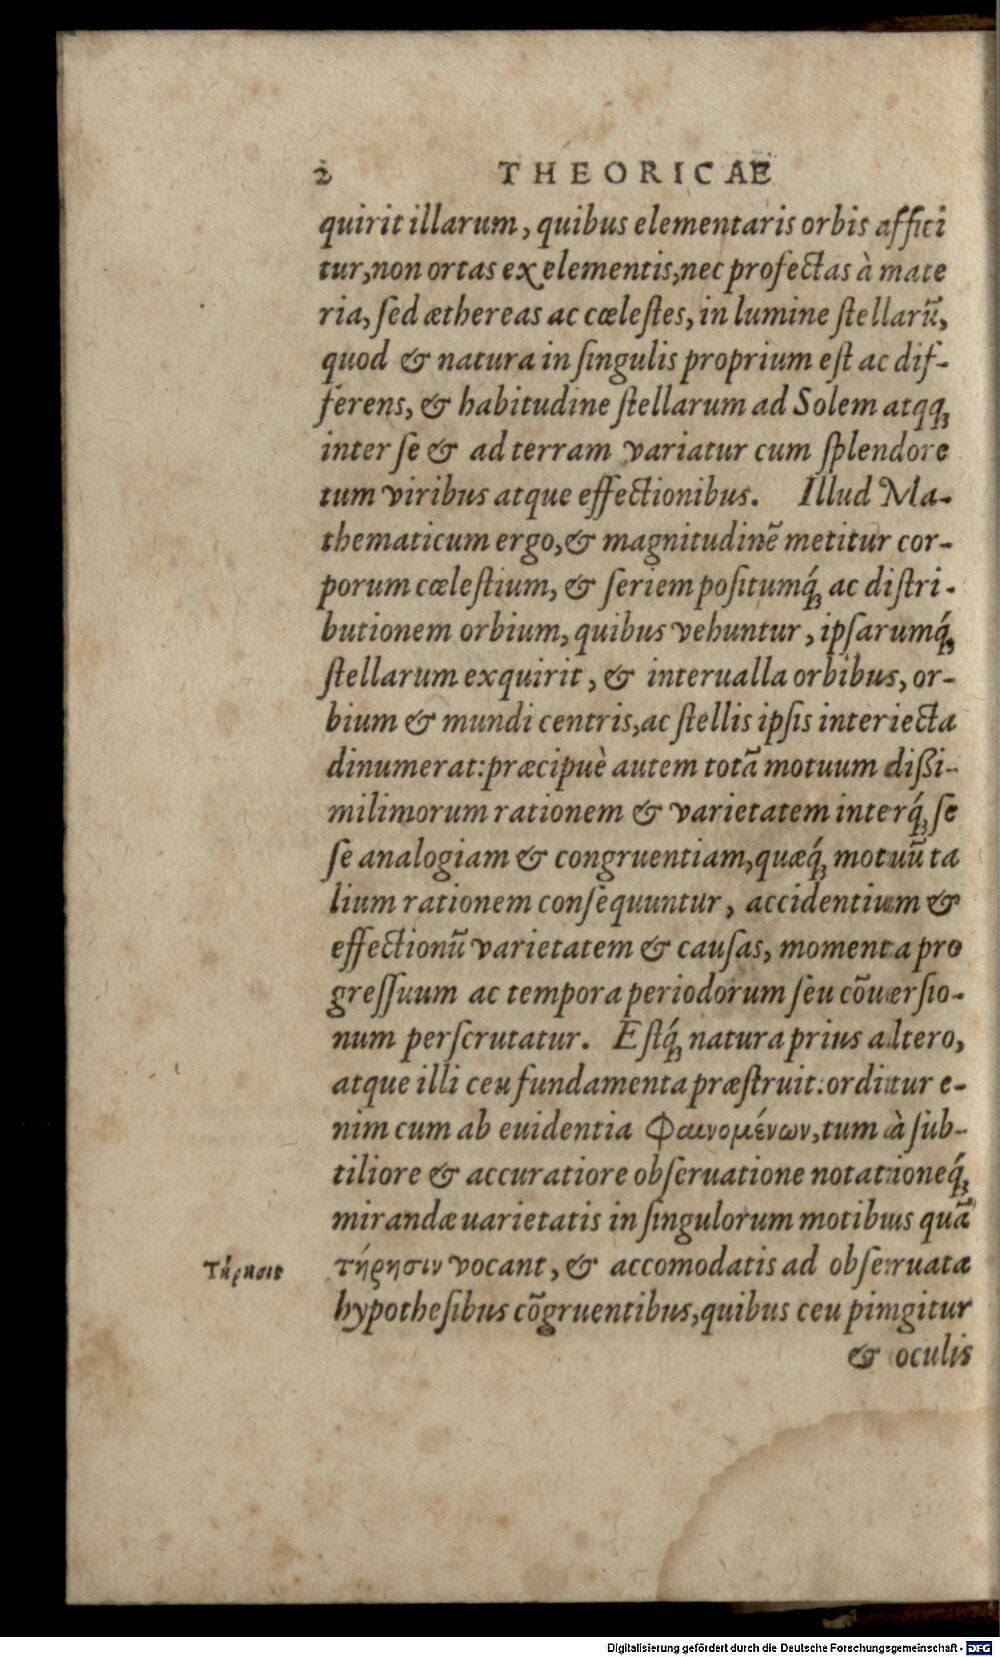 2 THEORICAE
quirit illarum, quibus elementaris orbis affici
tur, non ortas ex elementis, nec profectas à mate
ria, ſed æthereas ac cœleſtes, in lumine ſtellarũ,
quod & natura in ſingulis proprium eſt ac dif-
ferens, & habitudine ſtellarum ad Solem atqꝫ
inter ſe & ad terram variatur cum ſplendore
tum viribus atque effectionibus. Illud Ma-
thematicum ergo, & magnitudinẽ metitur cor-
porum cœleſtium, & ſeriem poſitumq́ꝫ ac diſtri-
butionem orbium, quibus vehuntur, ipſarumq́ꝫ
ſtellarum exquirit, & interualla orbibus, or-
bium & mundi centris, ac ſtellis ipſis interiecta
dinumerat: præcipuè autem totã motuum diſsi-
milimorum rationem & varietatem interq́ꝫ ſe
ſe analogiam & congruentiam, quæq́ꝫ motuũ ta
lium rationem conſequuntur, accidentium &
effectionũ varietatem & cauſas, momenta pro
greſſuum ac tempora periodorum ſeu cõuerſio-
num perſcrutatur. Eſtq́ꝫ natura prius altero,
atque illi ceu fundamenta præſtruit: orditur e-
nim cum ab euidentia Φαινομένων, tum à ſub-
tiliore & accuratiore obſeruatione notationeq́ꝫ
mirandæ uarietatis in ſingulorum motibus quã
Τήρησις τήρησιν vocant, & accomodatis ad obſeruata
hypotheſibus cõgruentibus, quibus ceu pingitur
& oculis
Digitalisierung gefördert durch die Deutsche Forschungsgemeinschaft - DFG